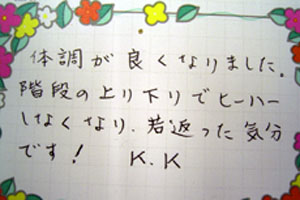 体調が良くなりました。
階段の上り下りでヒーハー
しなくなり、若返った気分
です! K.K